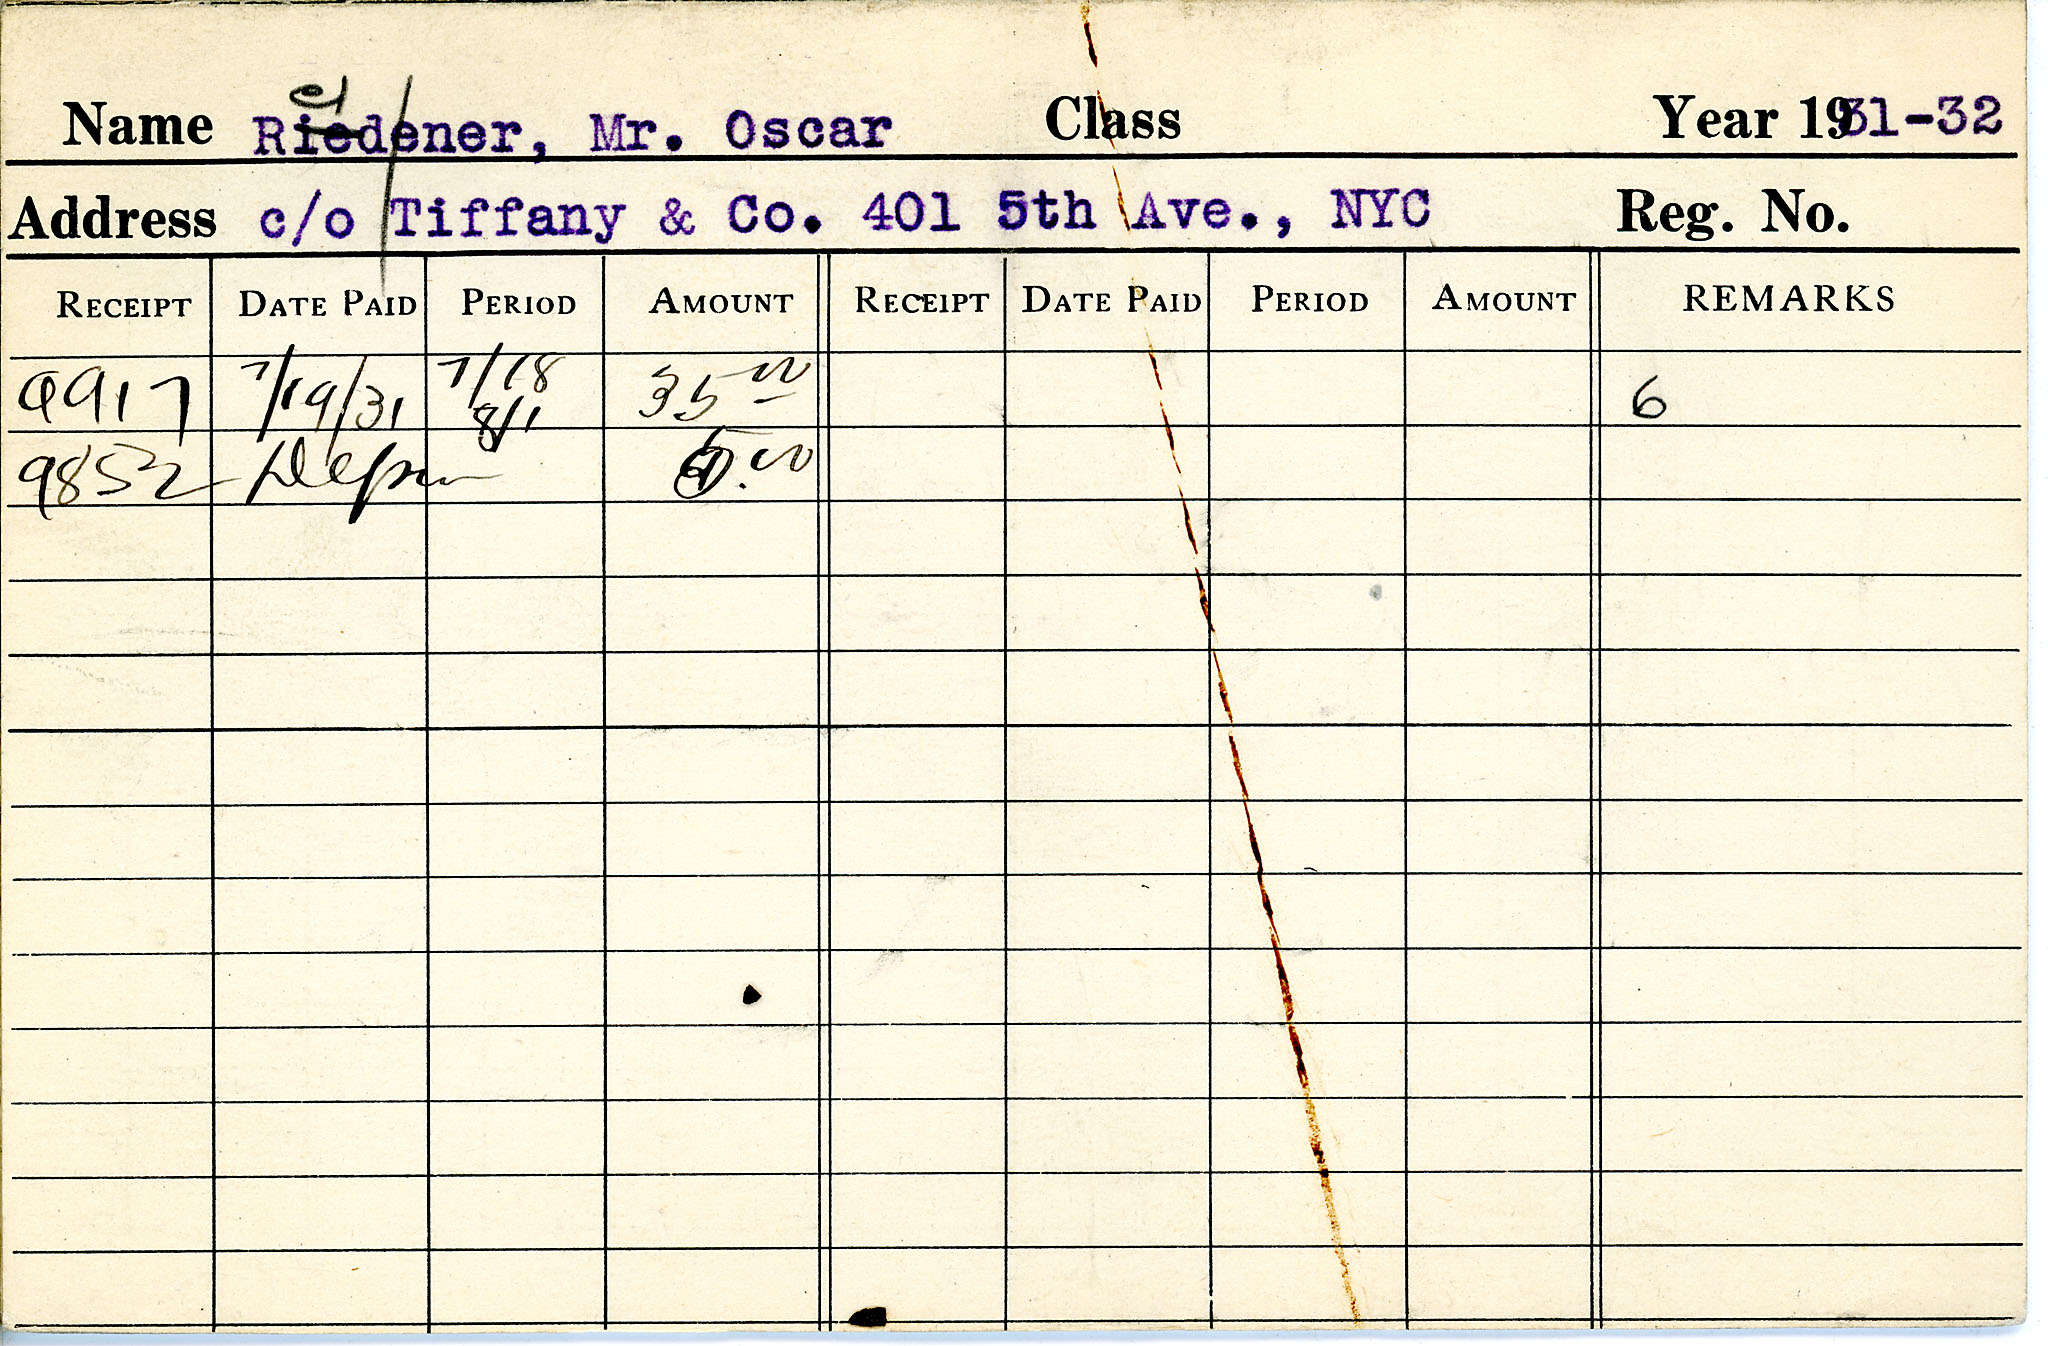 Name Riedener, Mr. Oscar Class Year 1931-32
ei
Address c/o Tiffany & Co. 401 5th Ave., NYC Reg. No.
RECEIPT DATE PAID PERIOD AMOUNT RECEIPT DATE PAID PERIOD AMOUNT REMARKS
9917 7/19/31 7/18 8/1 35 00 6
9852 5.00